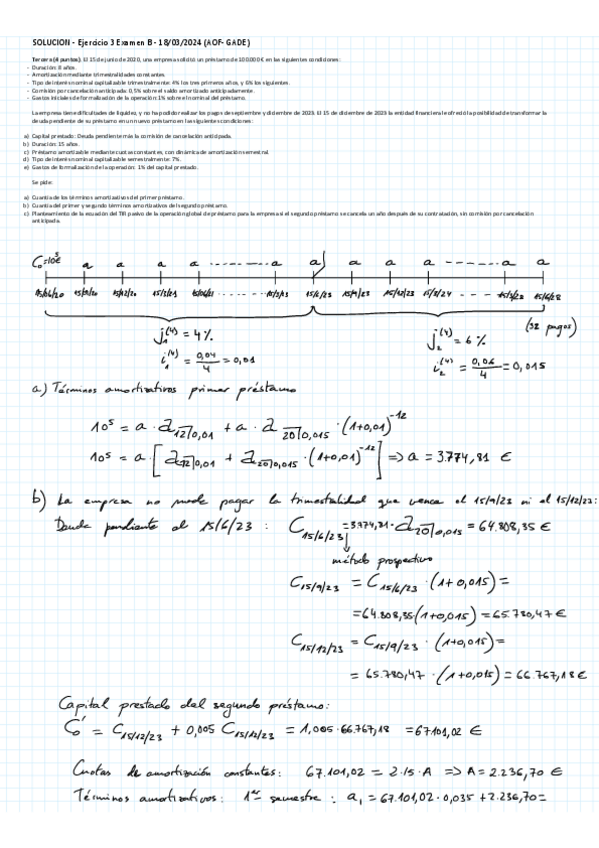 SOLUCION - Ejercicio 3 Examen B - 18/03/2024 (AOF- GADE)
Tercera (4 puntos). El 15 de junio de 2020, una empresa solicitó un préstamo de 100.000 € en las siguientes condiciones:
- Duración: 8 años.
- Amortización mediante trimestralidades constantes
- Tipo de interés nominal capitalizable trimestralmente: 4% los tres primeros años, y 6% los siguientes.
- Comisión por cancelación anticipada: 0,5% sobre el saldo amortizado anticipadamente.
- Gastos iniciales de formalización de la operación: 1% sobre el nominal del préstamo.
La empresa tiene dificultades de liquidez, y no ha podido realizar los pagos de septiembre y diciembre de 2023. El 15 de diciembre de 2023 la entidad financiera le ofreció la posibilidad de transformar la
deuda pendiente de su préstamo en un nuevo préstamo en las siguientes condiciones:
a) Capital prestado: Deuda pendiente más la comisión de cancelación anticipada.
b) Duración: 15 años.
c) Préstamo amortizable mediante cuotas constantes, con dinámica de amortización semestral.
d) Tipo de interés nominal capitalizable semestralmente: 7%.
e) Gastos de formalización de la operación: 1% del capital prestado.
Se pide:
a) Cuantía de los términos amortizativos del primer préstamo.
b) Cuantía del primer y segundo términos amortizativos del segundo préstamo.
c) Planteamiento de la ecuación del TIR pasivo de la operación global de préstamo para la empresa si el segundo préstamo se cancela un año después de su contratación, sin comisión por cancelación
anticipada.
C₀=10⁵€ a a a a - - - - - - - - a a a a a - - - - - - a a
15/06/20 15/9/20 15/12/20 15/3/21 15/06/21 - - - - - 15/3/23 15/6/23 15/9/23 15/12/23 15/3/24 - - - - 15/3/28 15/6/28
(32 pagos)
j₁⁽⁴⁾ = 4% j₂⁽⁴⁾ = 6%
i₁⁽⁴⁾ = 0,04/4 = 0,01 i₂⁽⁴⁾ = 0,06/4 = 0,015
a) Términos amortizativos primer préstamo
10⁵ = a · a12⌉0,01 + a · a20⌉0,015 · (1+0,01)⁻¹²
10⁵ = a · [a12⌉0,01 + a20⌉0,015 · (1+0,01)⁻¹²] => a = 3.774,81 €
b) La empresa no puede pagar la trimestralidad que vence el 15/9/23 ni el 15/12/23:
Deuda pendiente al 15/6/23 : C15/6/23 = 3.774,81 · a20⌉0,015 = 64.808,35 €
método prospectivo
C15/9/23 = C15/6/23 · (1+0,015) =
= 64.808,35(1+0,015) = 65.780,47 €
C15/12/23 = C15/9/23 · (1+0,015) =
= 65.780,47 · (1+0,015) = 66.767,18 €
Capital prestado del segundo préstamo:
C₀' = C15/12/23 + 0,005 C15/12/23 = 1,005 · 66.767,18 = 67.101,02 €
Cuotas de amortización constantes: 67.101,02 = 2·15·A => A = 2.236,70 €
Términos amortizativos: 1er semestre : a₁ = 67.101,02 · 0,035 + 2.236,70 =